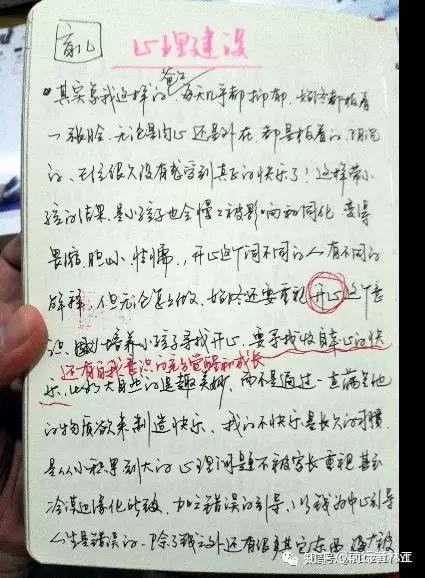 育儿
心理建设
爸爸
其实像我这样的,每天几乎都抑郁,始终都板着
一张脸,无论是内心还是外在,都是板着的、
的,已经很久没有感受到真正的快乐了!这样带小
孩的结果,是小孩子也会慢慢被影响和同化,变得
畏缩、胆小、怯懦,,开心这个词不同的人有不同的
解释,但无论怎么做,始终还要重视开心这个意
识,培养小孩子寻找开心,要寻找发自本心的快
还有自我意识的完全觉醒和成长
乐,比如大自然的道趣美妙,而不是通过一直满足他
的物质欲来制造快乐,我的不快乐是长久的习惯
是从小积累到大的心理问题不被家长重视甚至
冷漠边缘化所致,加之错误的引导,以钱为中心引导
人生是错误的,除了钱之外还有很多其它东西没有被
知乎 @